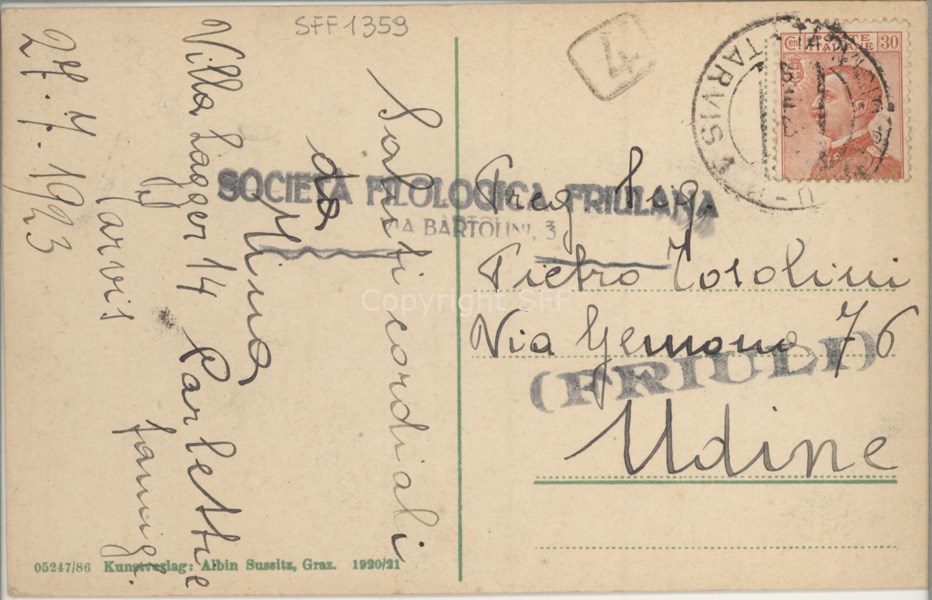 SFF 1359
4
TARVISI
POSTE ITALIANE
Cent 30
SOCIETÀ FILOLOGICA FRIULANA
VIA BARTOLINI, 3
(FRIULI)
Copyright SFF
Saluti cordiali
da
Nino
Carletti e
famig.
Villa Lagger 14
Tarvis
27.7.1923
Preg. Sig.
Pietro Tosolini
Via Gemona 76
Udine
05247/86 Kunstverlag: Albin Sussitz, Graz. 1920/21